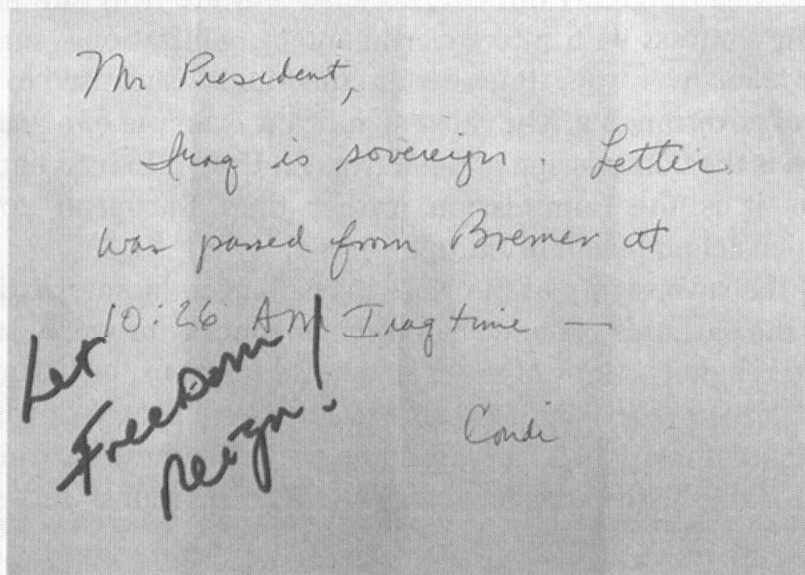 Mr President,
Iraq is sovereign. Letter
was passed from Bremer at
10:26 AM Iraq time —
Condi
Let
Freedom
Reign!